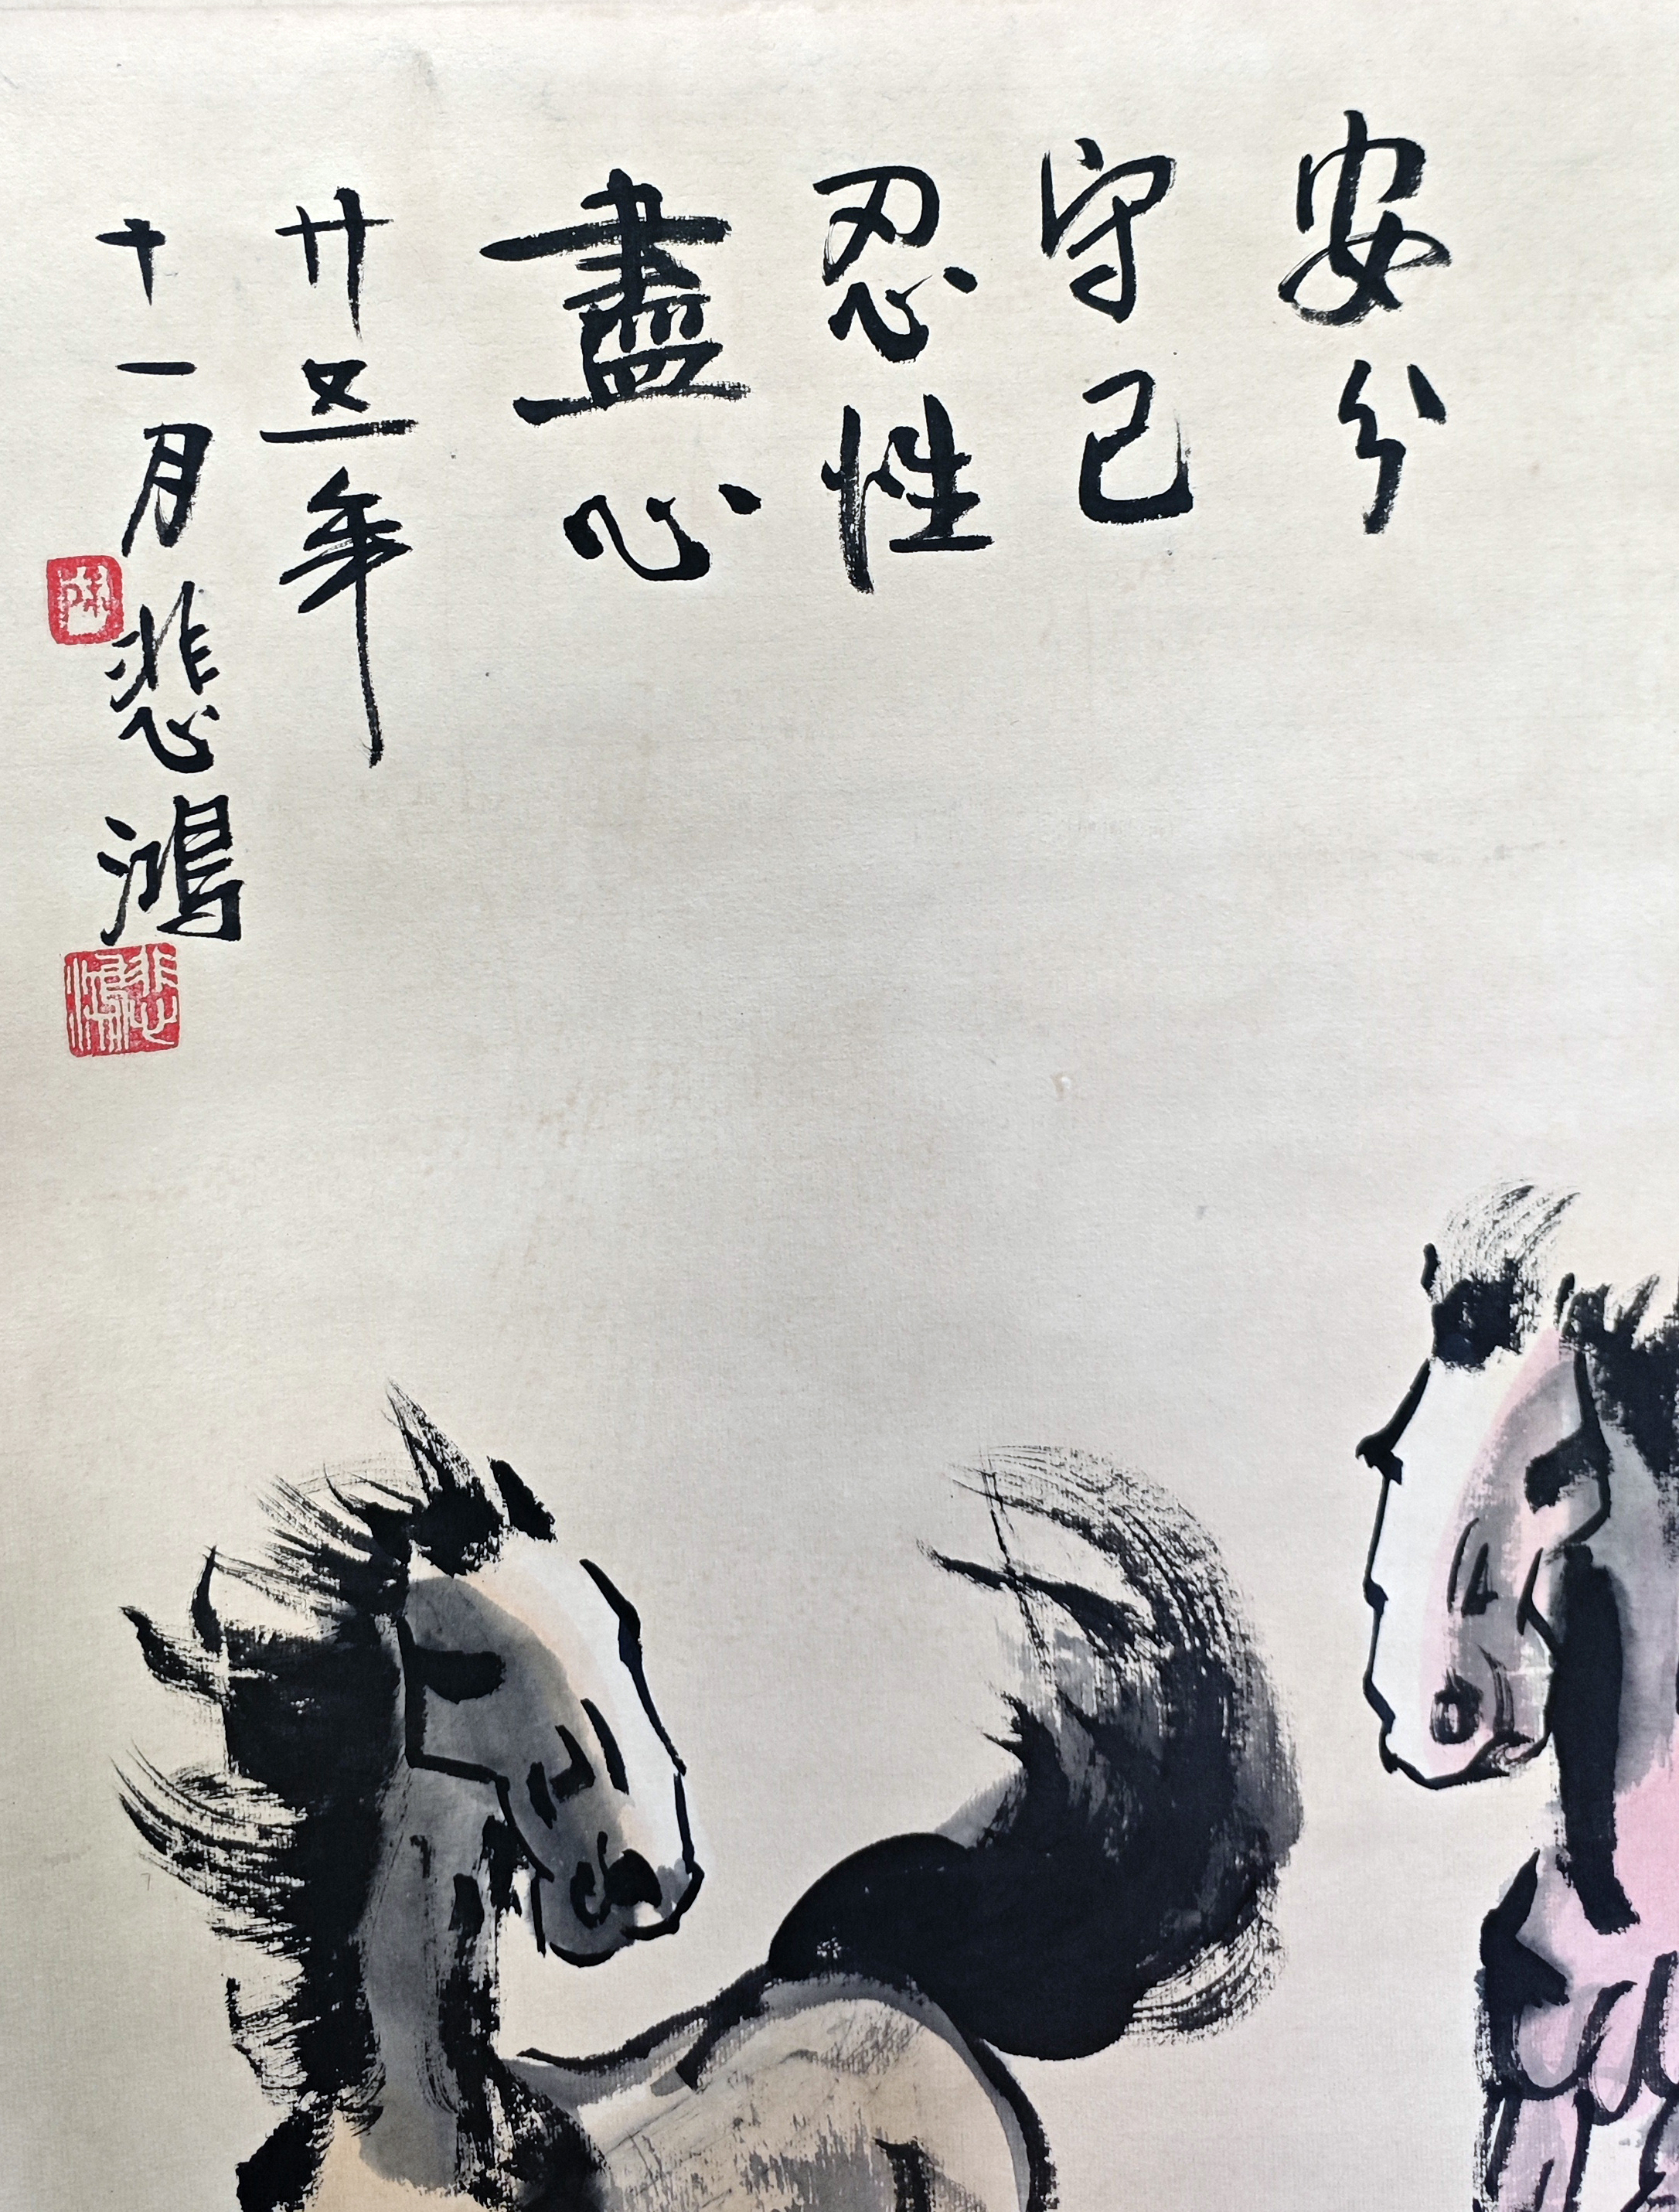 安分
守己
忍性
盡心
廿五年
十一月悲鴻
悲鴻